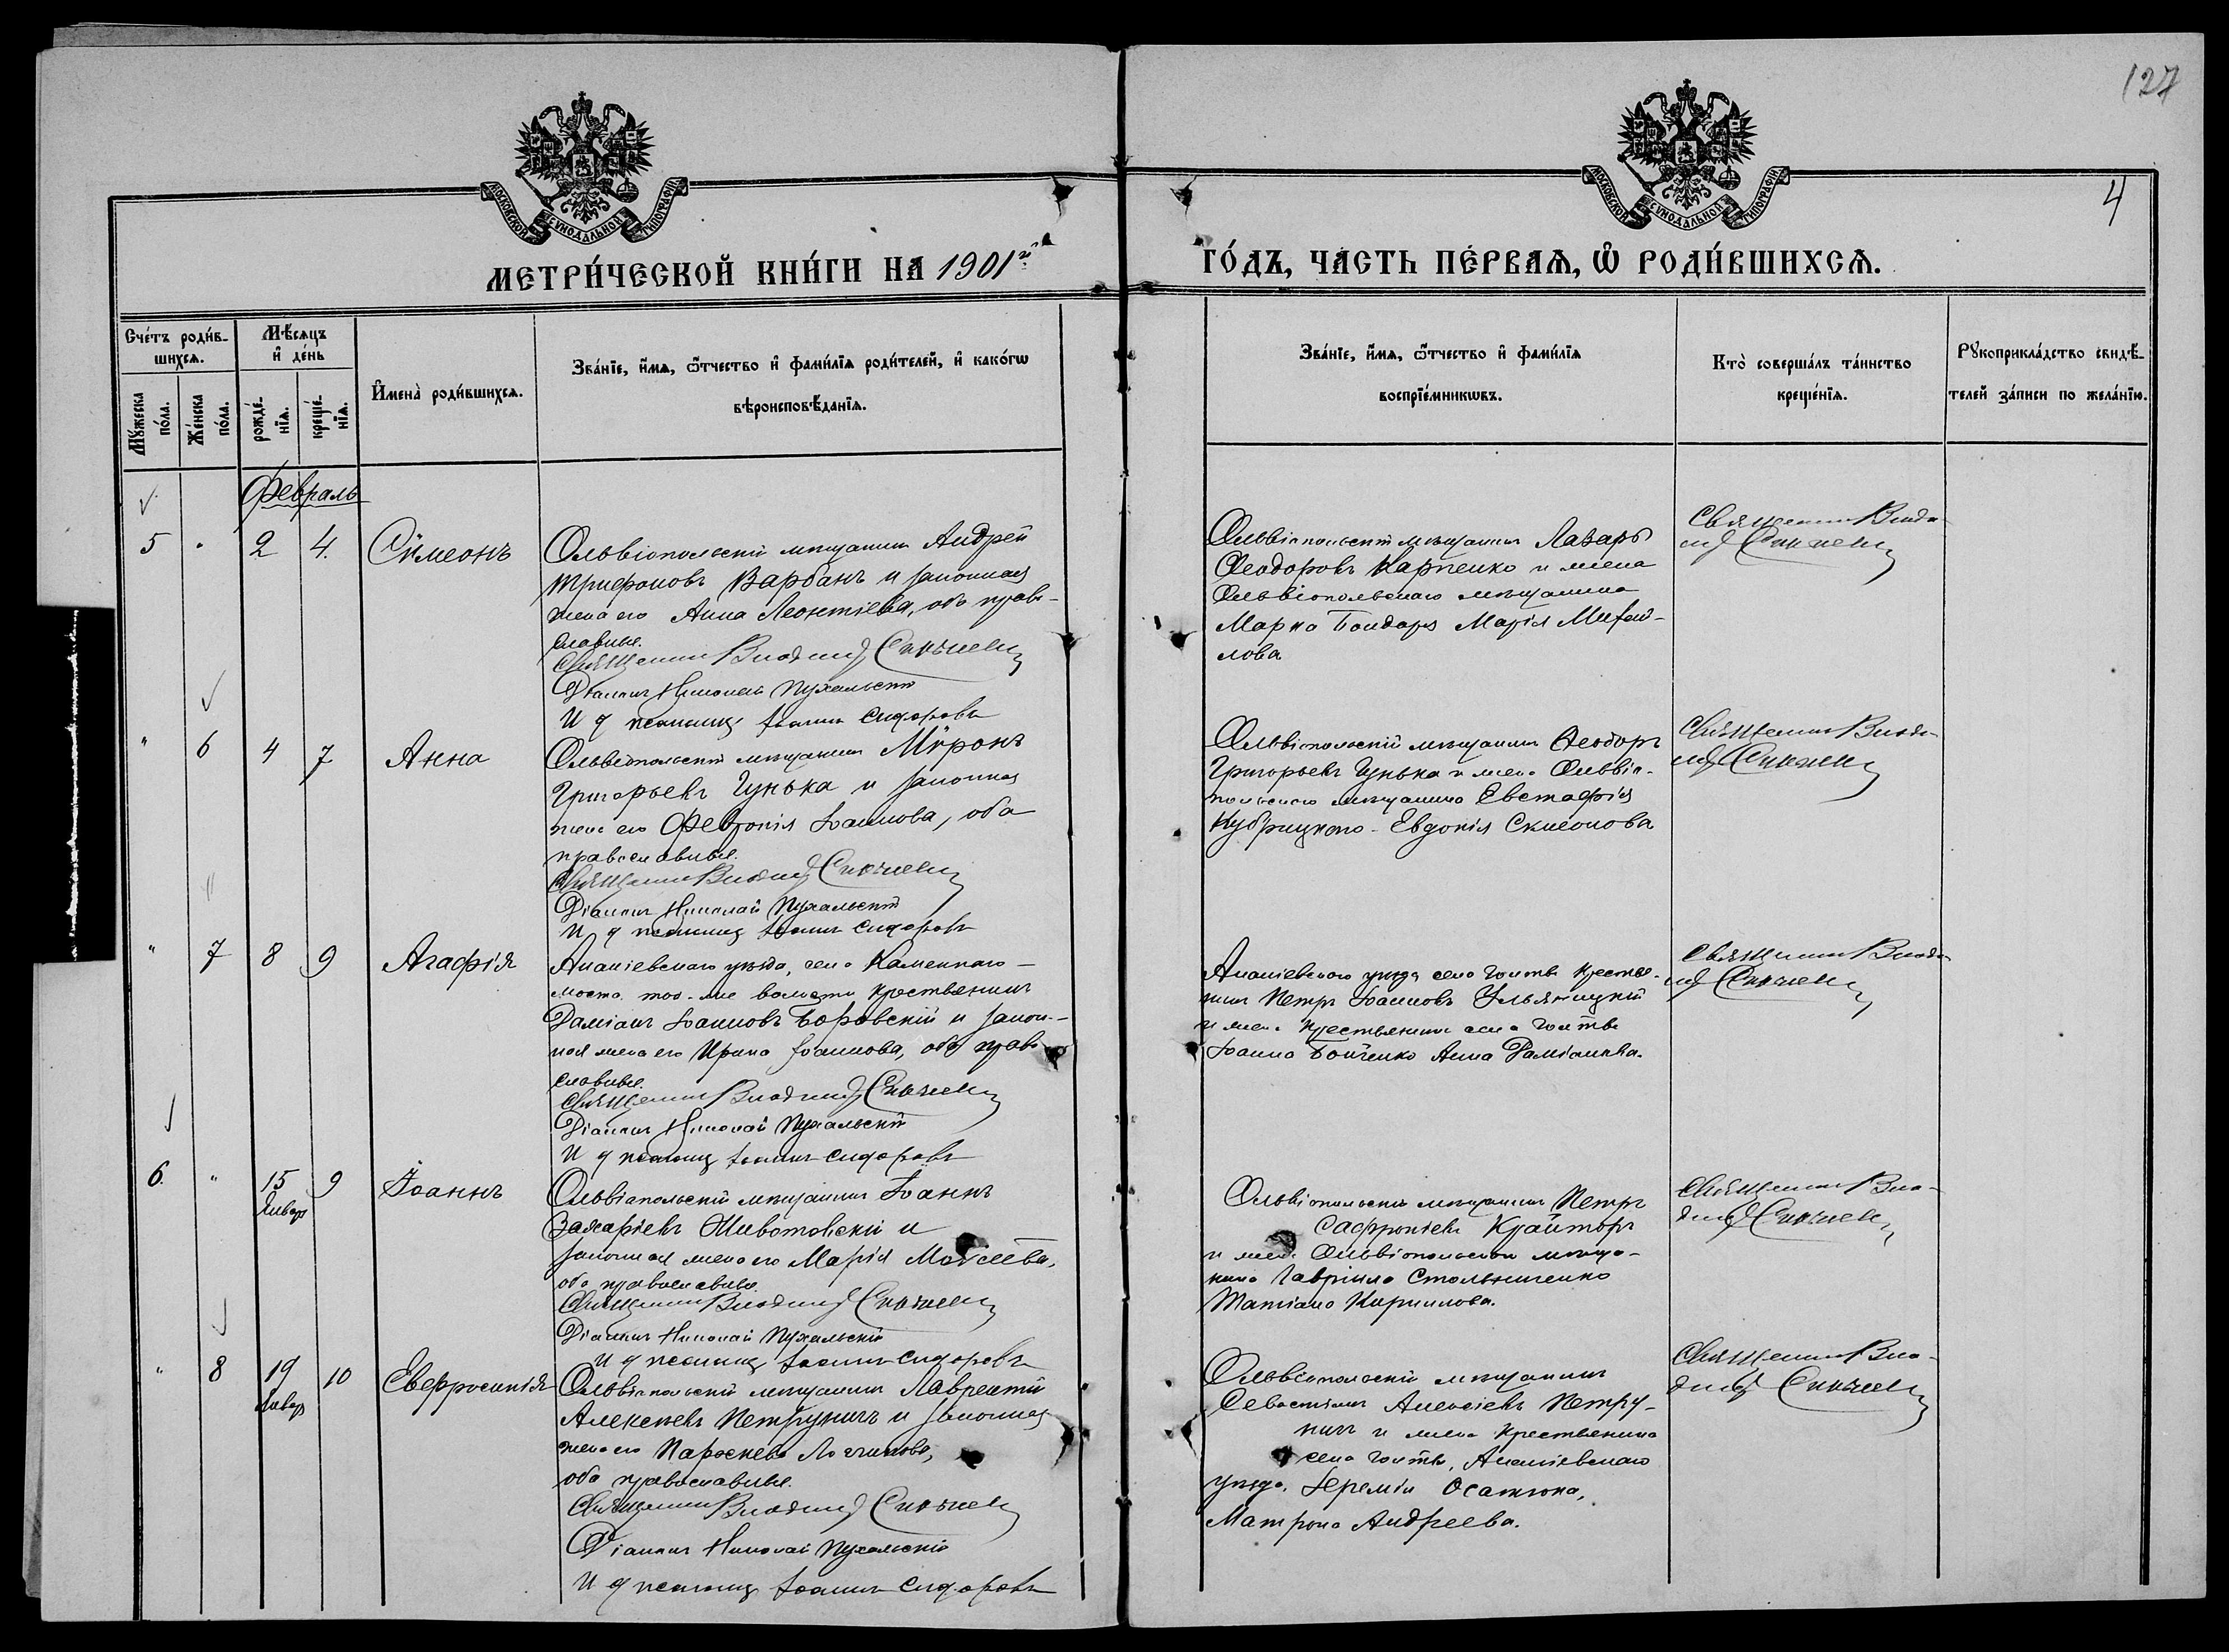 127
4
МОСКОВСКОЙ СѴНОДАЛЬНОЙ ТИПОГРАФІИ
МОСКОВСКОЙ СѴНОДАЛЬНОЙ ТИПОГРАФІИ
МЕТРИ́ЧЕСКОЙ КНИ́ГИ НА 1901й
ГО́ДЪ, ЧА́СТЬ ПЕ́РВАѦ, Ѡ҆ РОДИ́ВШИХСѦ.
Сче́тъ роди́в-
шихсѧ.
Мꙋ́жеска по́ла.
Же́нска по́ла.
Мѣ́сѧцъ
и҆ де́нь
рожде́-
нїѧ.
креще́-
нїѧ.
И҆мена̀ роди́вшихсѧ.
Зва́нїе, и҆́мѧ, ѻ҆́тчество и҆ фами́лїѧ роди́телей, и҆ како́гѡ
вѣроисповѣ́данїѧ.
Зва́нїе, и҆́мѧ, ѻ҆́тчество и҆ фами́лїѧ
воспрїе́мникѡвъ.
Кто̀ соверша́лъ та́инство
креще́нїѧ.
Рꙋкоприкла́дство свидѣ́-
телей за́писи по жела́нїю.
Февраль
5 " 2 4. Сѵмеонъ
Ольвіопольскій мѣщанинъ Андрей
Трифоновъ Варбанъ и законная
жена его Анна Леонтіева, оба право-
славные.
Священникъ Владимір
Діаконъ Николай Пухальскій
И д псаломщ Іоаннъ Сидоровъ
Ольвіопольскій мѣщанинъ Лазарь
Ѳеодоровъ Карпенко и жена
Ольвіопольскаго мѣщанина
Марка Бондаря Марія Михай-
лова
Священникъ Влади-
мір
" 6 4 7 Анна
Ольвіопольскій мѣщанинъ Мѵронъ
Григорьевъ Гунька и законная
жена его Февронія Іоаннова, оба
православные.
Священникъ Владимір
Діаконъ Николай Пухальскій
И д псаломщ Іоаннъ Сидоровъ
Ольвіопольскій мѣщанинъ Ѳеодоръ
Григорьевъ Гунька и жена Ольвіо-
польскаго мѣщанина Евстафія
Кубрицкаго Евдокія
Священникъ Влади-
мір
" 7 8 9 Агафія
Ананіевскаго уѣзда, села Каменнаго-
моста, той-же волости крестьянинъ
Даміанъ Іоанновъ Боровскій и закон-
ная жена его Ирина Іоаннова, оба право-
славные.
Священникъ Владимір
Діаконъ Николай Пухальскій
И д псаломщ Іоаннъ Сидоровъ
Ананіевскаго уѣзда села Голты крестья-
нинъ Петръ Іоанновъ Ульяницкій
и жена крестьянина села Голты
Іоанна Бойченко Анна Даміанова.
Священникъ Влади-
мір
6. " 15 Январ 9 Іоаннъ
Ольвіопольскій мѣщанинъ Іоаннъ
Захаріевъ Животовскій и
законная жена его Марія Моѵсеева,
оба православные.
Священникъ Владимір
Діаконъ Николай Пухальскій
И д псаломщ Іоаннъ Сидоровъ
Ольвіопольскій мѣщанинъ Петръ
Сафроніевъ Крайторъ
и жена Ольвіопольскаго мѣща-
нина Гавріила Стольниченко
Татіана Кириллова.
Священникъ Вла-
димір
" 8 19 Январ 10 Евфросинія
Ольвіопольскій мѣщанинъ Лаврентій
Алексѣевъ Петрунинъ и законная
жена его Параскева Логгинова,
оба православные.
Священникъ Владимір
Діаконъ Николай Пухальскій
И д псаломщ Іоаннъ Сидоровъ
Ольвіопольскій мѣщанинъ
Севастіанъ Алексіевъ Петру-
нинъ и жена крестьянина
села Голты, Ананіевскаго
уѣзда, Іереміи
Матрона Андреева.
Священникъ Вла-
димір